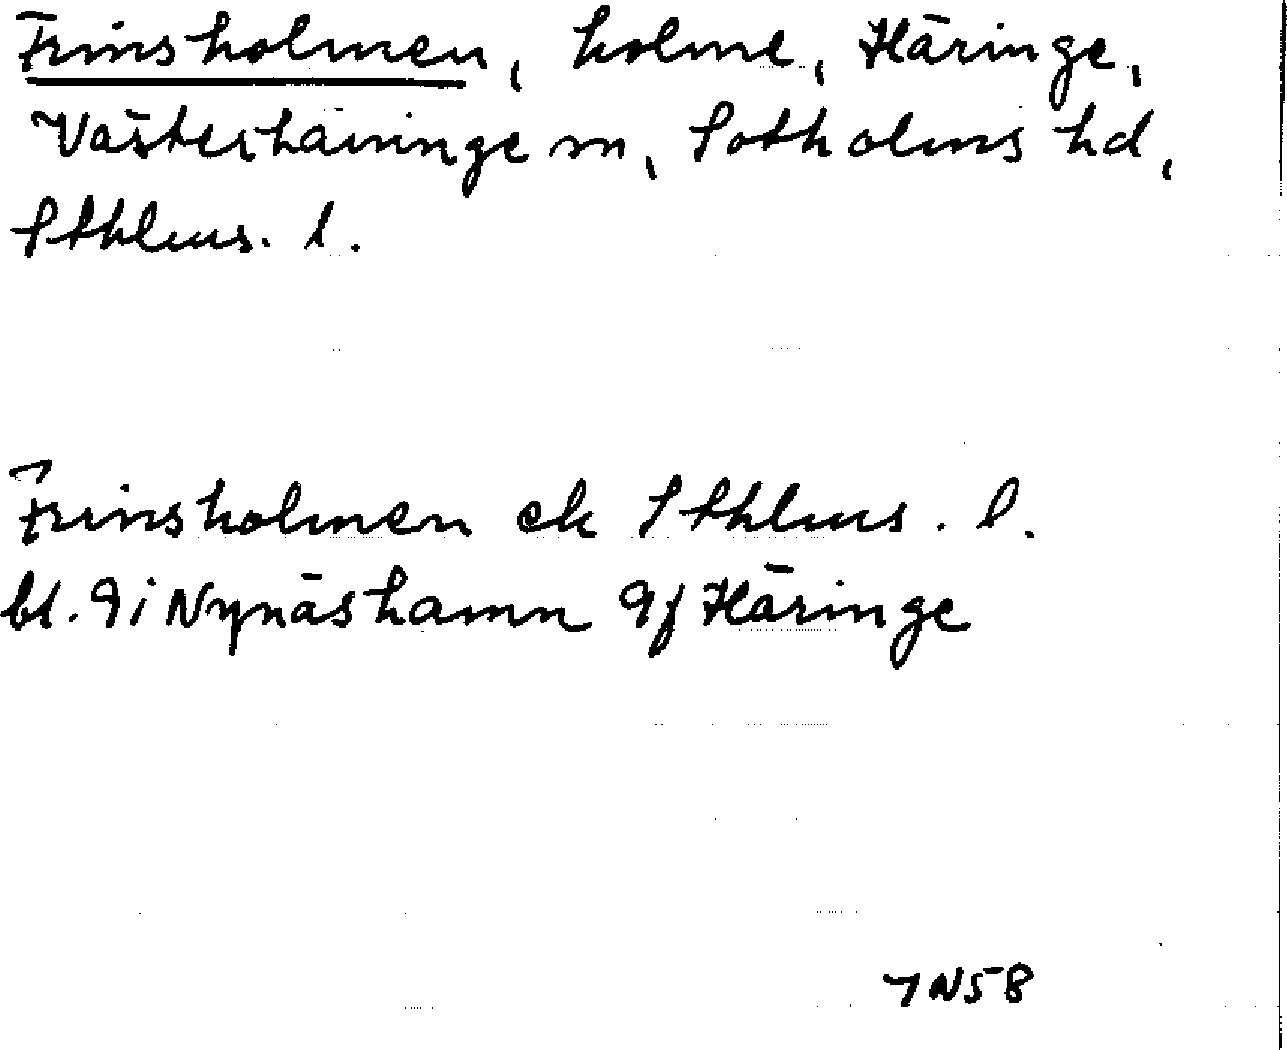 Frinsholmen, holme, Häringe,
Västerhaninge sn, Sotholms hd,
Sthlms. l.
Frinsholmen ek Sthlms. l.
bl. 9i Nynäshamn 9f Häringe
7N5B